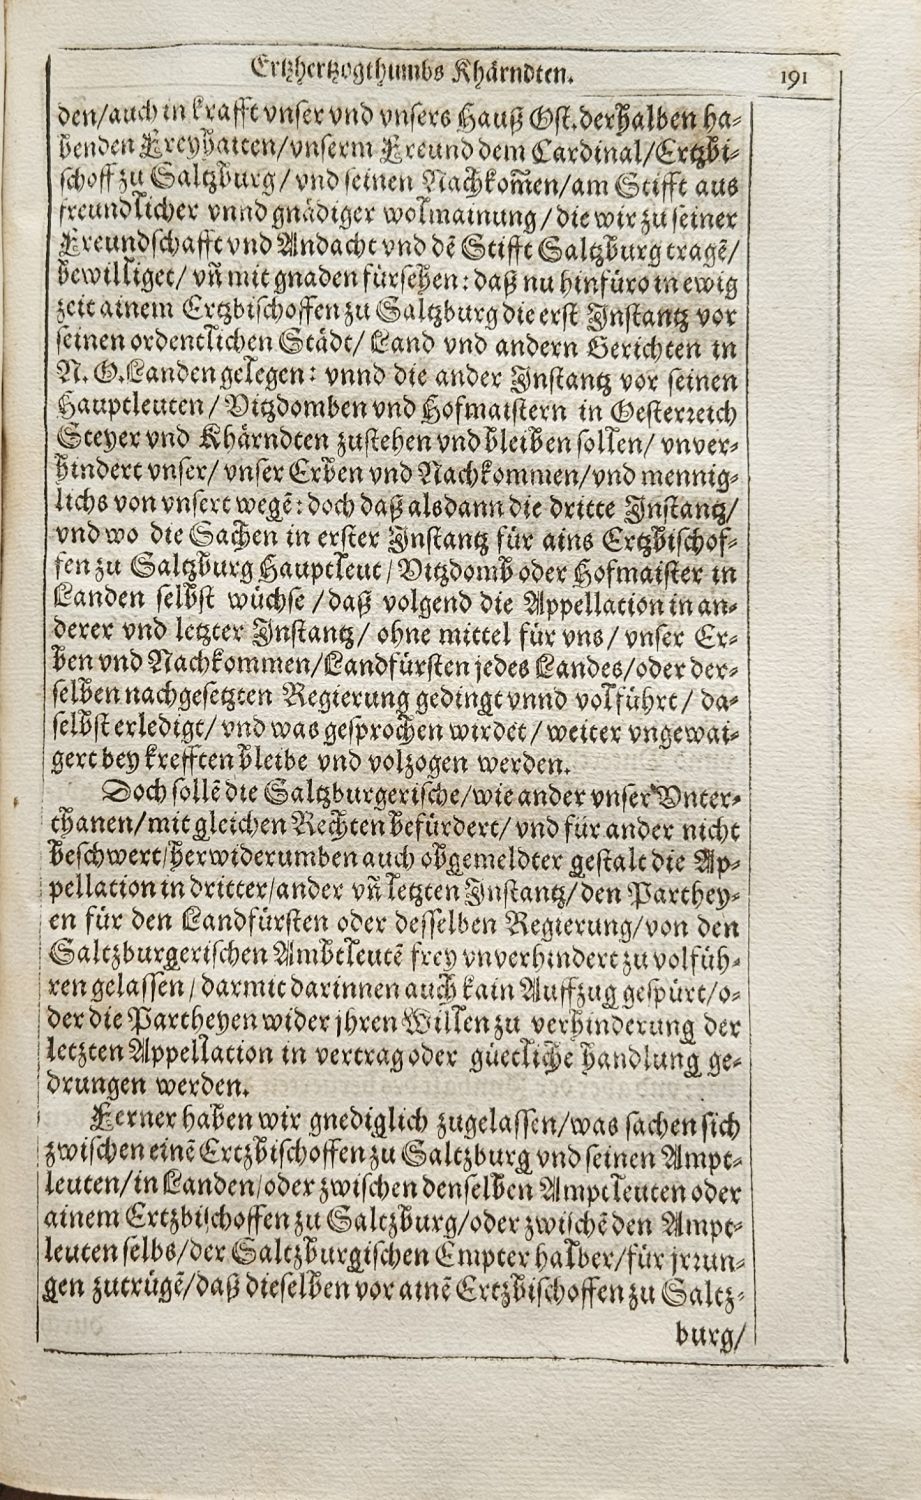 Ertzhertzogthumbs Khärndten. 191
den/auch in krafft vnser vnd vnsers Hauß Ost. derhalben ha-
benden Freyhaiten/vnserm Freund dem Cardinal/Ertzbi-
schoff zu Saltzburg/vnd seinen Nachkom̃en/am Stifft aus
freundlicher vnnd gnädiger wolmainung/die wir zu seiner
Freundschafft vnd Andacht vnd dẽ Stifft Saltzburg tragẽ/
bewilliget/vñ mit gnaden fürsehen: daß nu hinfüro in ewig
zeit ainem Ertzbischoffen zu Saltzburg die erst Instantz vor
seinen ordentlichen Städt/Land vnd andern Gerichten in
N. O. Landen gelegen: vnnd die ander Instantz vor seinen
Hauptleuten/Vitzdomben vnd Hofmaistern in Oesterreich
Steyer vnd Khärndten zustehen vnd bleiben sollen/vnver-
hindert vnser/vnser Erben vnd Nachkommen/vnd mennig-
lichs von vnsert wegẽ: doch daß alsdann die dritte Instantz/
vnd wo die Sachen in erster Instantz für ains Ertzbischof-
fen zu Saltzburg Hauptleut/Vitzdomb oder Hofmaister in
Landen selbst wüchse/daß volgend die Appellation in an-
derer vnd letzter Instantz/ohne mittel für vns/vnser Er-
ben vnd Nachkommen/Landfürsten jedes Landes/oder der-
selben nachgesetzten Regierung gedingt vnnd volführt/da-
selbst erledigt/vnd was gesprochen wirdet/weiter vngewai-
gert bey krefften bleibe vnd volzogen werden.
Doch sollẽ die Saltzburgerische/wie ander vnser Vnter-
thanen/mit gleichen Rechten befürdert/vnd für ander nicht
beschwert/herwiderumben auch obgemeldter gestalt die Ap-
pellation in dritter/ander vñ letzten Instantz/den Parthey-
en für den Landfürsten oder desselben Regierung/von den
Saltzburgerischen Ambtleutẽ frey vnverhindert zu volfüh-
ren gelassen/darmit darinnen auch kain Auffzug gespürt/o-
der die Partheyen wider jhren Willen zu verhinderung der
letzten Appellation in vertrag oder güetliche handlung ge-
drungen werden.
Ferner haben wir gnediglich zugelassen/was sachen sich
zwischen einẽ Ertzbischoffen zu Saltzburg vnd seinen Ampt-
leuten/in Landen/oder zwischen denselben Amptleuten oder
ainem Ertzbischoffen zu Saltzburg/oder zwischẽ den Ampt-
leuten selbs/der Saltzburgischen Empter halber/für jrrun-
gen zutrügẽ/daß dieselben vor ainẽ Ertzbischoffen zu Saltz-
burg/